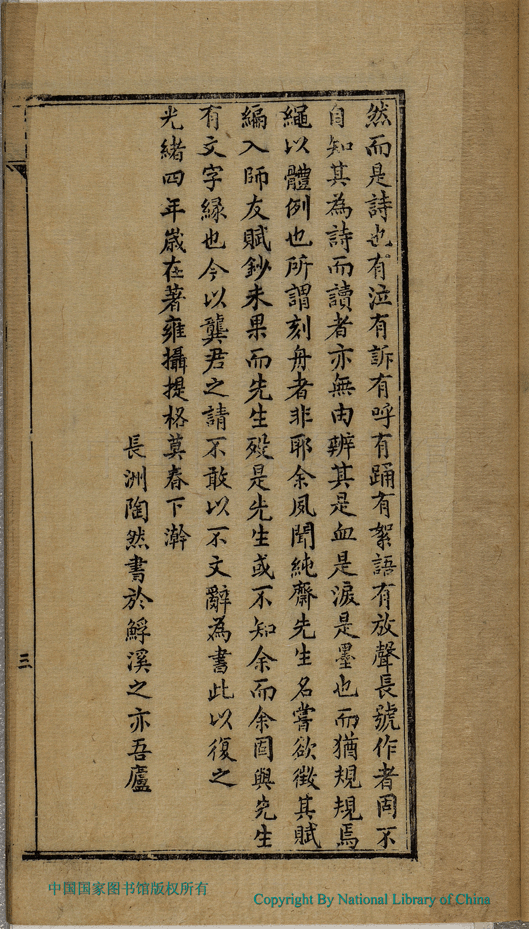 然而是詩也有泣有訴有呼有踊有絮語有放聲長號作者固不
自知其為詩而讀者亦無由辨其是血是淚是墨也而猶規規焉
繩以體例也所謂刻舟者非耶余夙聞純齋先生名嘗欲徵其賦
編入師友賦鈔未果而先生歿是先生或不知余而余固與先生
有文字緣也今以龔君之請不敢以不文辭為書此以復之
光緒四年嵗在著雍攝提格莫春下澣
長洲陶然書於鯚溪之亦吾廬
三
中国国家图书馆版权所有
Copyright By National Library of China